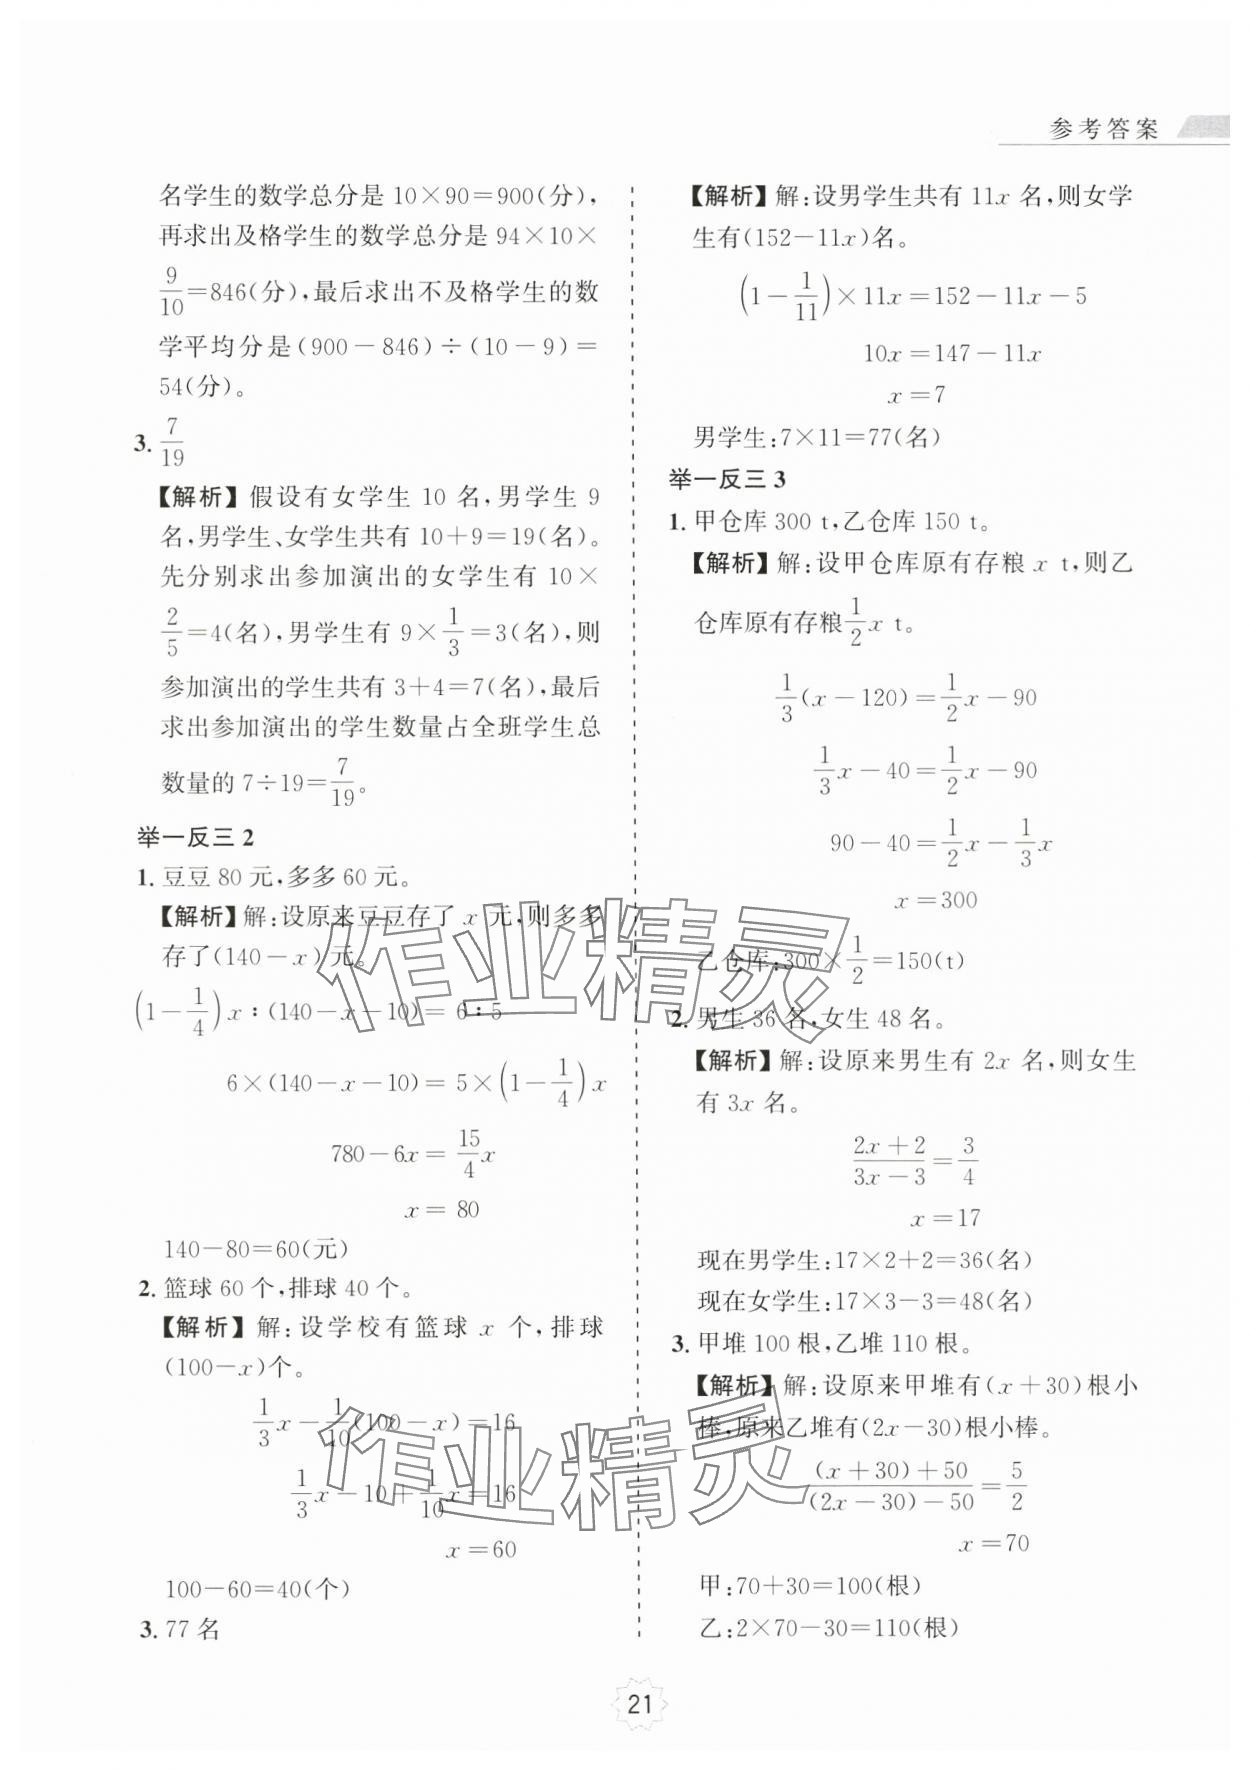 参考答案
名学生的数学总分是 10×90=900(分),
再求出及格学生的数学总分是 94×10×
9/10=846(分),最后求出不及格学生的数
学平均分是(900-846)÷(10-9)=
54(分)。
3. 7/19
【解析】假设有女学生 10 名,男学生 9
名,男学生、女学生共有 10+9=19(名)。
先分别求出参加演出的女学生有 10×
2/5=4(名),男学生有 9×1/3=3(名),则
参加演出的学生共有 3+4=7(名),最后
求出参加演出的学生数量占全班学生总
数量的 7÷19=7/19。
举一反三 2
1. 豆豆 80 元,多多 60 元。
【解析】解:设原来豆豆存了 x 元,则多多
存了(140-x)元。
(1-1/4)x∶(140-x-10)=6∶5
6×(140-x-10)=5×(1-1/4)x
780-6x=15/4x
x=80
140-80=60(元)
2. 篮球 60 个,排球 40 个。
【解析】解:设学校有篮球 x 个,排球
(100-x)个。
1/3x-1/10(100-x)=16
1/3x-10+1/10x=16
x=60
100-60=40(个)
3. 77 名
【解析】解:设男学生共有 11x 名,则女学
生有(152-11x)名。
(1-1/11)×11x=152-11x-5
10x=147-11x
x=7
男学生:7×11=77(名)
举一反三 3
1. 甲仓库 300 t,乙仓库 150 t。
【解析】解:设甲仓库原有存粮 x t,则乙
仓库原有存粮1/2x t。
1/3(x-120)=1/2x-90
1/3x-40=1/2x-90
90-40=1/2x-1/3x
x=300
乙仓库:300×1/2=150(t)
2. 男生 36 名,女生 48 名。
【解析】解:设原来男生有 2x 名,则女生
有 3x 名。
(2x+2)/(3x-3)=3/4
x=17
现在男学生:17×2+2=36(名)
现在女学生:17×3-3=48(名)
3. 甲堆 100 根,乙堆 110 根。
【解析】解:设原来甲堆有(x+30)根小
棒,原来乙堆有(2x-30)根小棒。
((x+30)+50)/((2x-30)-50)=5/2
x=70
甲:70+30=100(根)
乙:2×70-30=110(根)
作业精灵
作业精灵
21